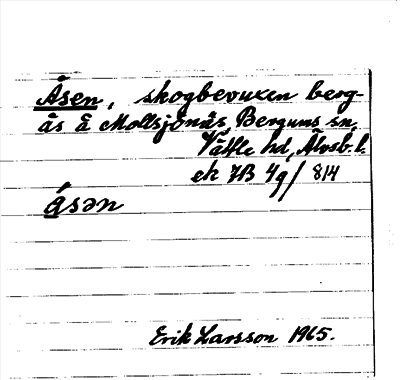 Åsen, skogbevuxen berg-
ås å Mollsjönäs, Bergums sn,
Vättle hd, Älvsb. l.
ek 7B 4g/ 814
åsən
Erik Larsson 1965.